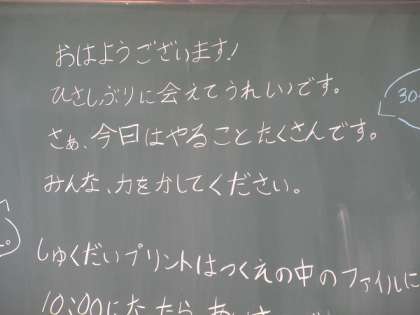 おはようございます!
ひさしぶりに会えてうれしいです。
さぁ、今日はやることたくさんです。
みんな、力をかしてください。
しゅくだいプリントはつくえの中のファイルに
10:00になったら
30